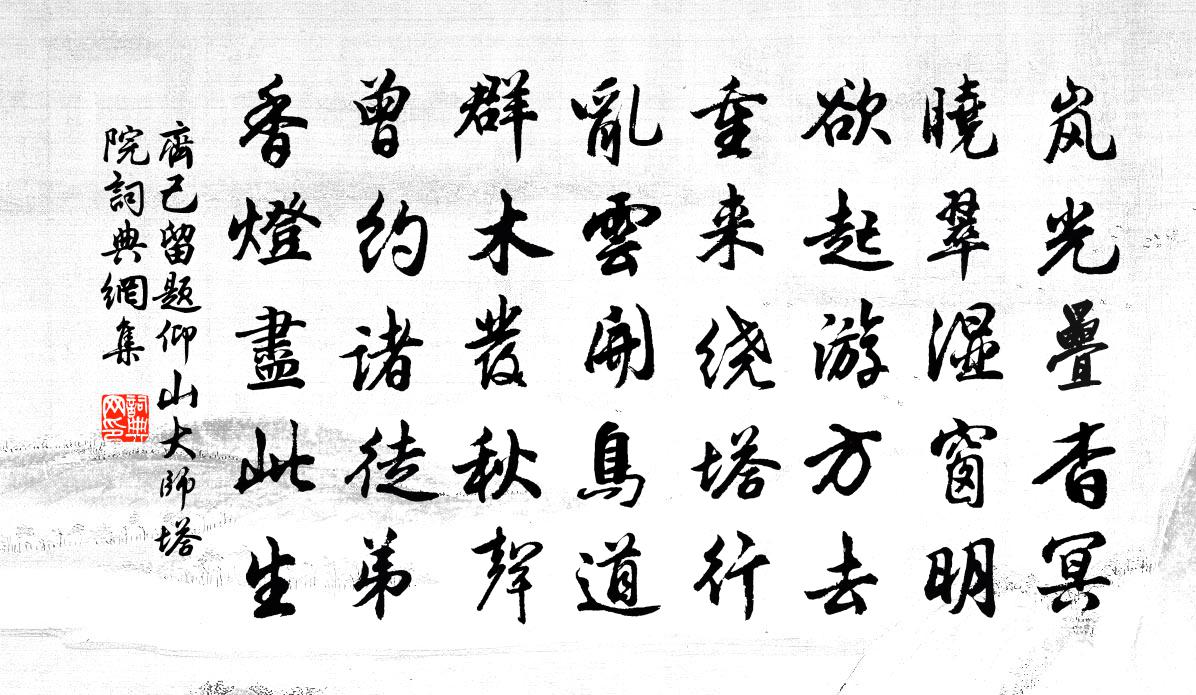 岚光疊杳冥
曉翠濕窗明
欲起游方去
重来绕塔行
亂雲開鳥道
群木發秋聲
曾约诸徒弟
香燈盡此生
齊己留题仰山大师塔
院詞典網集
詞典网印